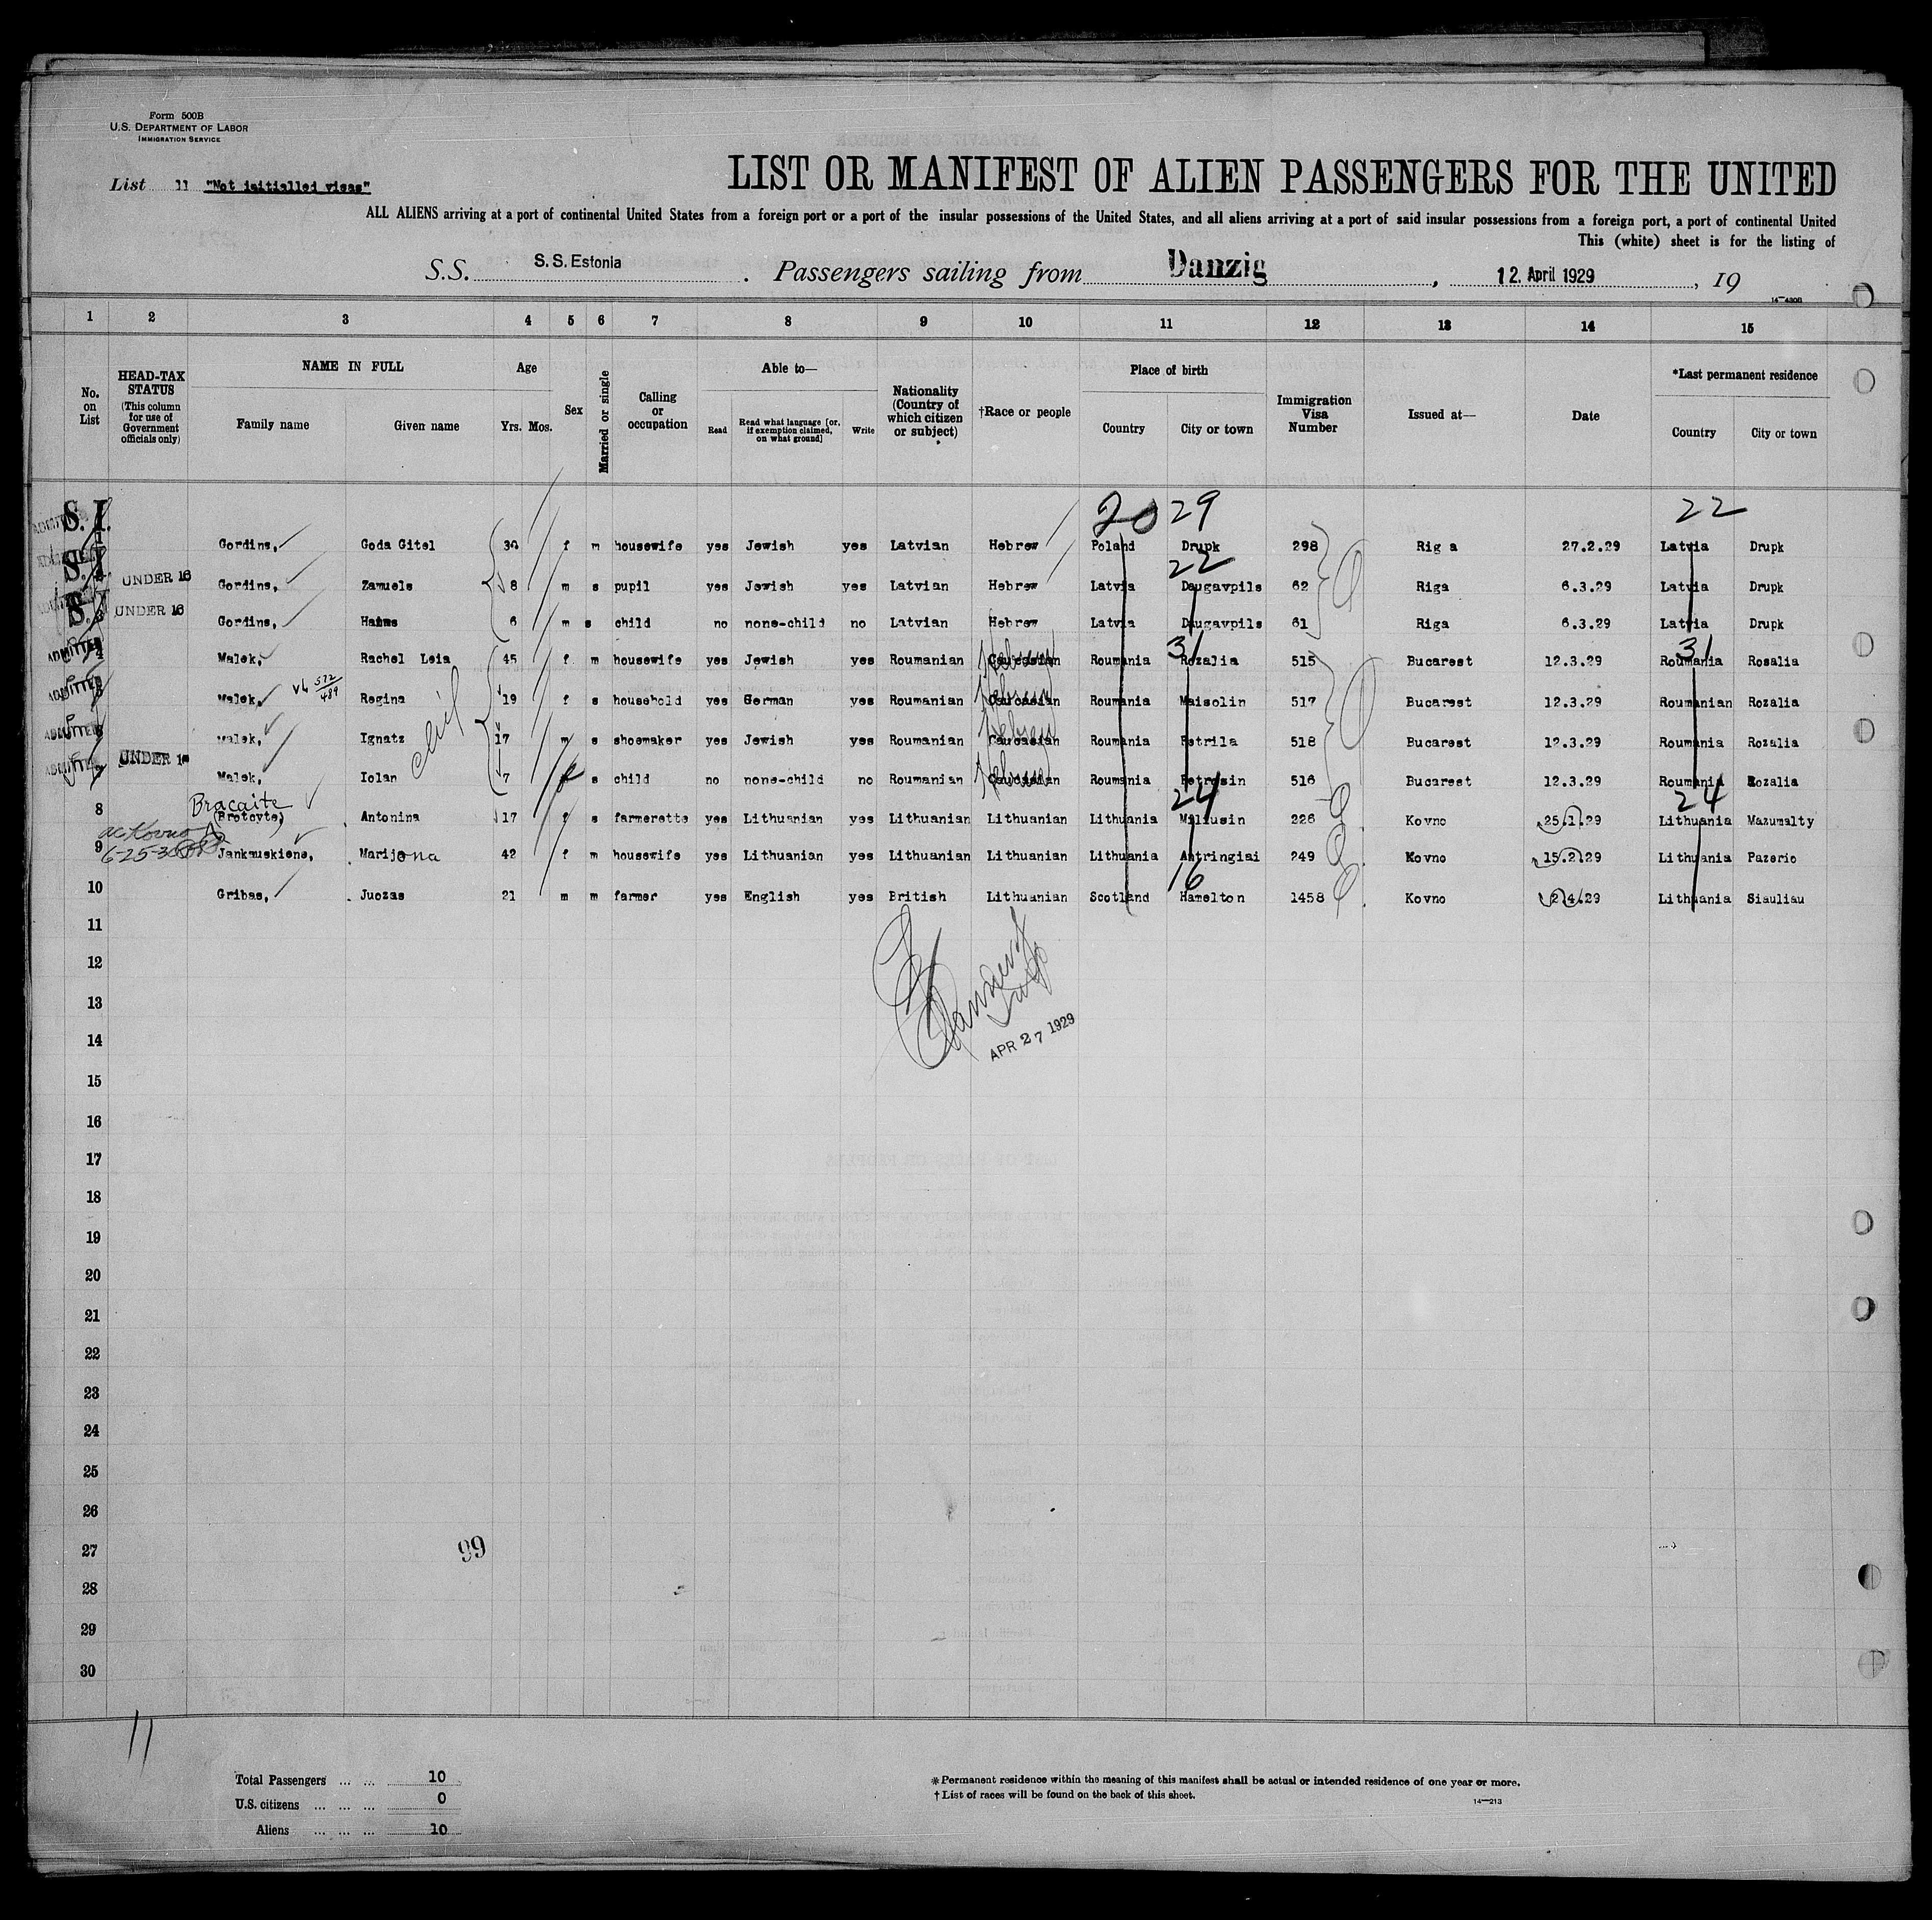 Form 500B
U.S. DEPARTMENT OF LABOR
IMMIGRATION SERVICE
List 11 "Not initialled visas"
LIST OR MANIFEST OF ALIEN PASSENGERS FOR THE UNITED
ALL ALIENS arriving at a port of continental United States from a foreign port or a port of the insular possessions of the United States, and all aliens arriving at a port of said insular possessions from a foreign port, a port of continental United
This (white) sheet is for the listing of
S.S. S.S. Estonia . Passengers sailing from Danzig , 12. April 1929 , 19
14—430B
1 2 3 4 5 6 7 8 9 10 11 12 13 14 15
No. on List
HEAD-TAX STATUS (This column for use of Government officials only)
NAME IN FULL
Family name Given name
Age
Yrs. Mos.
Sex
Married or single
Calling or occupation
Able to—
Read
Read what language [or, if exemption claimed, on what ground]
Write
Nationality (Country of which citizen or subject)
†Race or people
Place of birth
Country City or town
Immigration Visa Number
Issued at—
Date
*Last permanent residence
Country City or town
S.I. 20 29 22
1 Gordins, Goda Gitel 30 f m housewife yes Jewish yes Latvian Hebrew Poland Drupk 298 Rig a 27.2.29 Latvia Drupk
S.I. 22
UNDER 16 Gordins, Zamuels 8 m s pupil yes Jewish yes Latvian Hebrew Latvia Daugavpils 62 Riga 6.3.29 Latvia Drupk
S.I.
3 UNDER 16 Gordins, 6 m s child no none-child no Latvian Hebrew Latvia Daugavpils 61 Riga 6.3.29 Latvia Drupk
31 31
ADMITTED 4 Malek, Rachel Leia 45 f m housewife yes Jewish yes Roumanian Caucasian Hebrew Roumania Rozalia 515 Bucarest 12.3.29 Roumania Rosalia
ADMITTED Malek, V4 572/489 Regina 19 f s household yes German yes Roumanian Caucasian Hebrew Roumania Maisolin 517 Bucarest 12.3.29 Roumanian Rozalia
ADMITTED Malek, Ignatz 17 m s shoemaker yes Jewish yes Roumanian Caucasian Hebrew Roumania Petrila 518 Bucarest 12.3.29 Roumania Rozalia
ADMITTED 7 UNDER 16 Malek, Iolan 7 f s child no none-child no Roumanian Caucasian Hebrew Roumania Petrosin 516 Bucarest 12.3.29 Roumania Rozalia
Bracaite 24 24
8 (Brotovte) Antonina 17 f s farmerette yes Lithuanian yes Lithuanian Lithuanian Lithuania Miliusin 226 Kovno 25.1.29 Lithuania Mazumalty
9 Jankauskiene, Marijona 42 f m housewife yes Lithuanian yes Lithuanian Lithuanian Lithuania Antringiai 249 Kovno 15.2.29 Lithuania Pazerio
16
10 Gribas, Juozas 21 m m farmer yes English yes British Lithuanian Scotland Hamelton 1458 Kovno 2.4.29 Lithuania Siauliau
11
12
13
14
APR 27 1929
15
16
17
18
19
20
21
22
23
24
25
26
27
99
28
29
30
11
Total Passengers ... ... 10
U.S. citizens ... ... ... 0
Aliens ... ... ... 10
*Permanent residence within the meaning of this manifest shall be actual or intended residence of one year or more.
†List of races will be found on the back of this sheet.
14—213